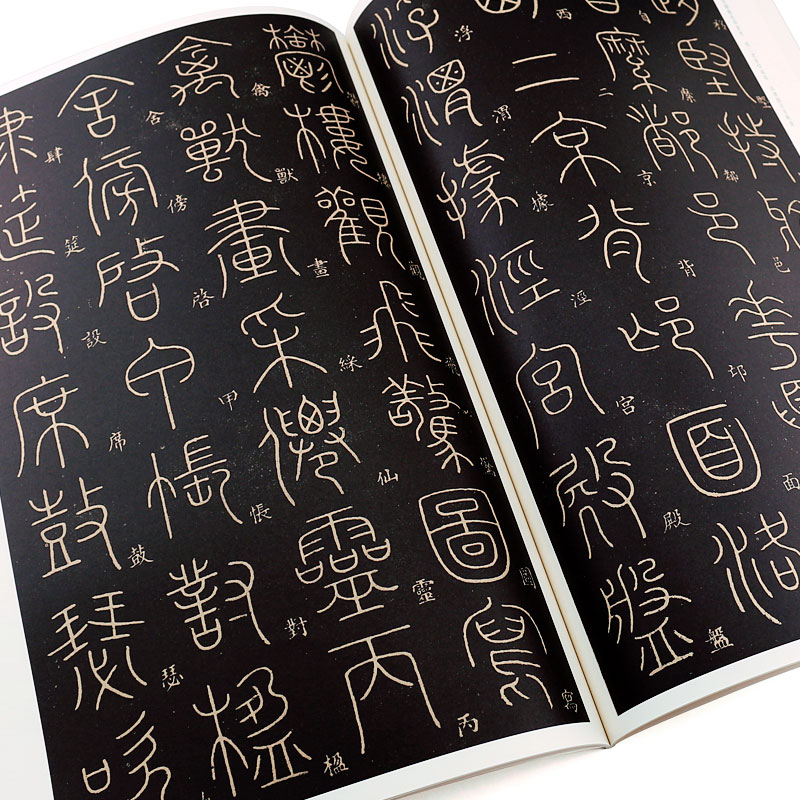 移堅持
自縻都邑華
西二京背邙面洛
浮渭據涇宮殿盤
鬱樓觀飛驚圖寫
禽獸畫綵仙靈丙
舍傍啓甲帳對楹
肆筵設席鼓瑟吹